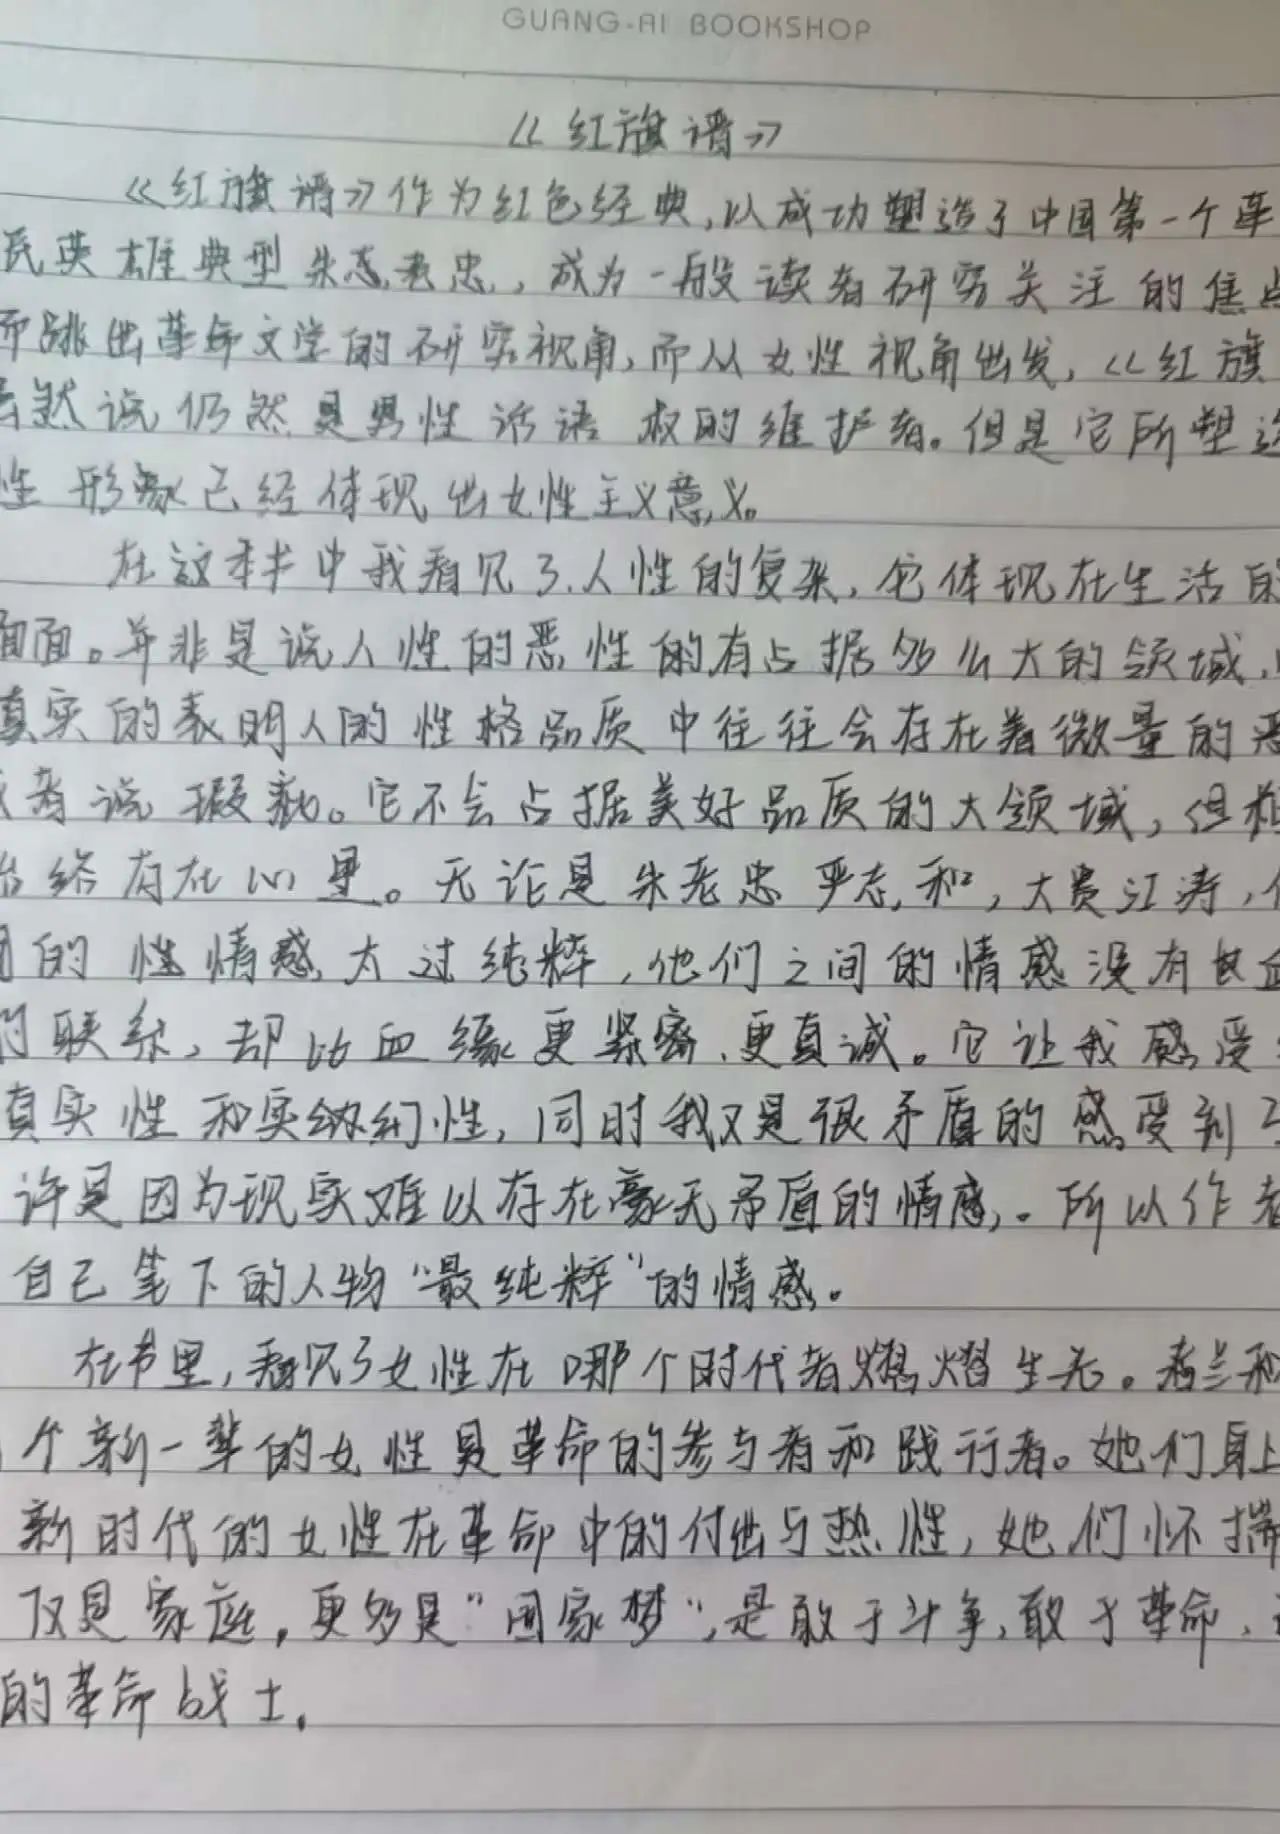 GUANG-AI BOOKSHOP
《红旗谱》
《红旗谱》作为红色经典,以成功塑造了中国第一个革
民英雄典型朱老忠,成为一般读者研究关注的焦点
而跳出革命文学的研究视角,而从女性视角出发,《红旗
虽然说仍然是男性话语权的维护者。但是它所塑造
性形象已经体现出女性主义意义。
在这本书中我看见了人性的复杂,它体现在生活的
面面。并非是说人性的恶性的有占据多么大的领域,
真实的表明人的性格品质中往往会存在着微量的恶
或者说瑕疵。它不会占据美好品质的大领域,但
始终存在心里。无论是朱老忠严志和,大贵江涛,
间的性情感太过纯粹,他们之间的情感没有
的联系,却比血缘更紧密,更真诚。它让我感受
真实性和实性,同时我又是很矛盾的感受到了
许是因为现实难以存在毫无矛盾的情感。所以作者
自己笔下的人物“最纯粹”的情感。
在书里,看见了女性在哪个时代着熠熠生光。春兰和
个新一辈的女性是革命的参与者和践行者。她们身上
新时代的女性在革命中的付出与热性,她们怀揣
仅是家庭,更多是“国家梦”,是敢于斗争,敢于革命,
的革命战士.